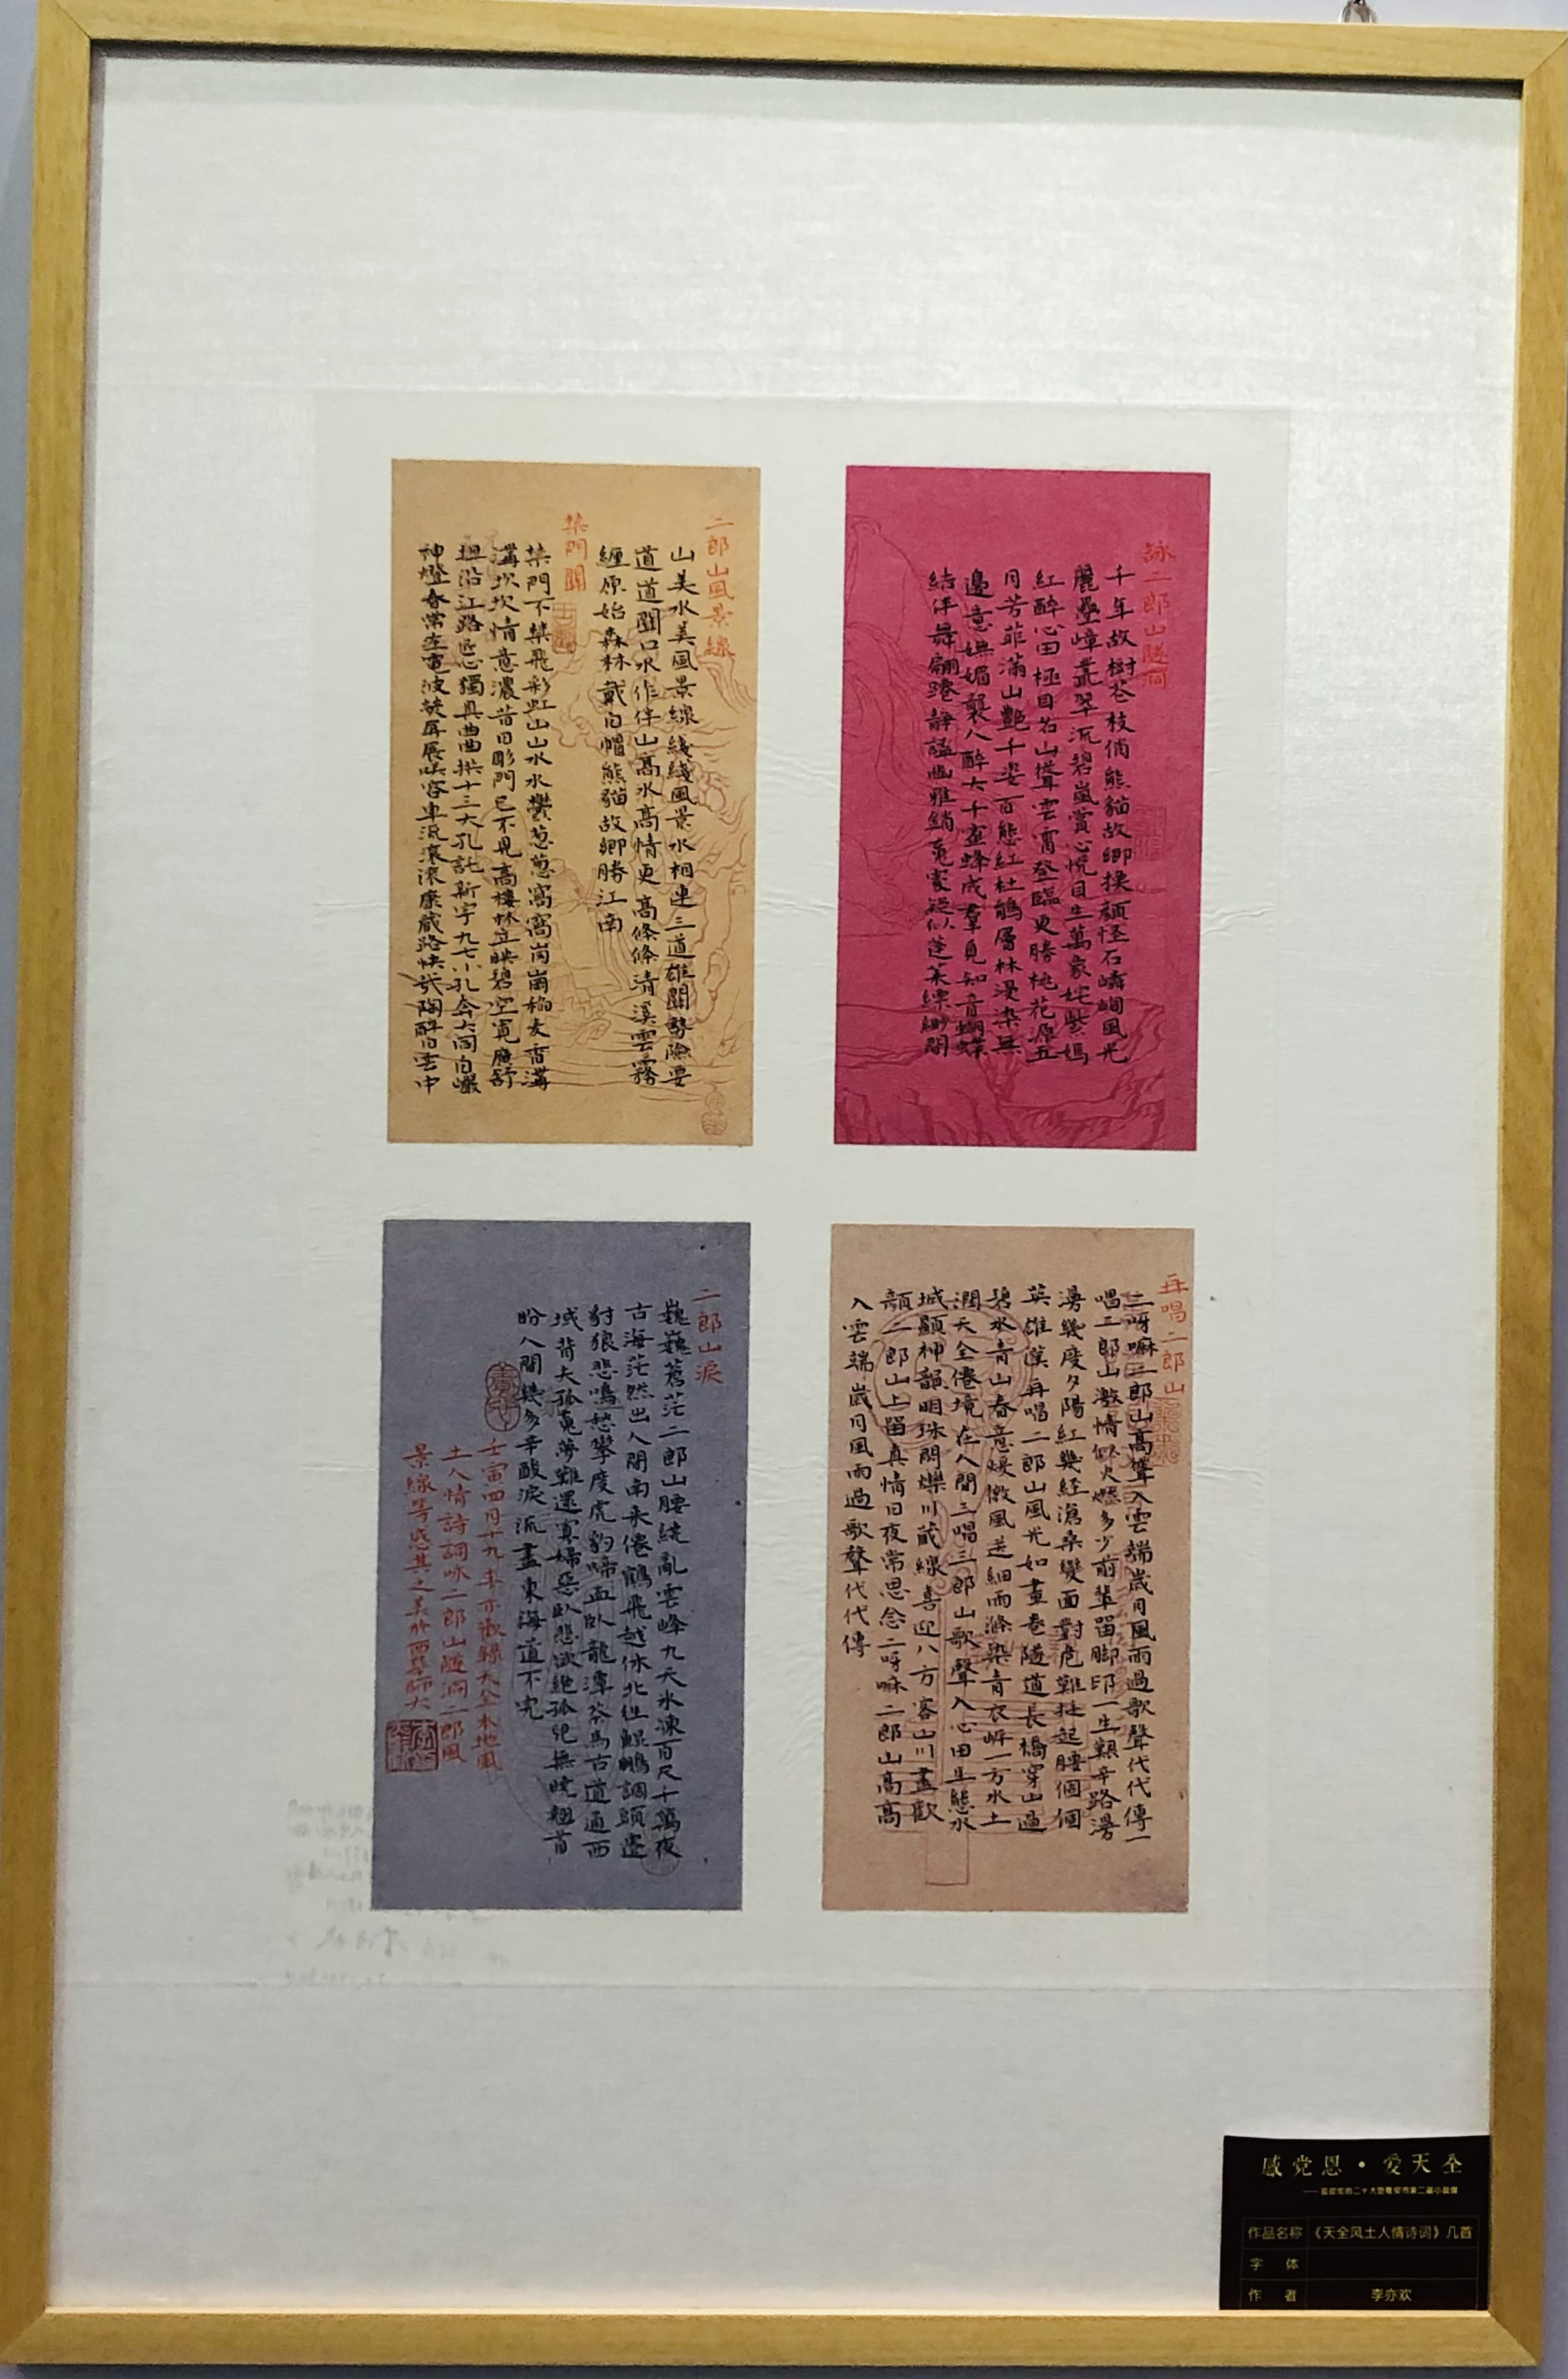 詠二郎山隧洞
千年故樹苍枝俏熊貓故鄉換顏怪石嶙峋風光
麗疊嶂叢翠流碧嵐賞心悦目生萬象姹紫嫣
紅醉心田極目名山聳雲霄登臨更勝桃花源五
月芳菲滿山艷千姿百態紅杜鵑層林漫染無
邊意嫵媚襲人醉大千蜜蜂成羣見知音蝴蝶
結伴舞翩蹮靜謐幽雅銷䰟處疑似蓬萊縹緲間
二郎山風景線
山美水美風景線綫綫風景水相連三道雄關勢險要
道道關口水作伴山高水高情更高條條清溪雲霧
纏原始森林戴白帽熊貓故鄉勝江南
禁門關
禁門不禁飛彩虹山山水水鬱葱葱窩窩岗崗稻麦香溝
溝坎坎情意濃昔日彫門已不見高樓林立映碧空寬廣舒
坦沿江路匠心獨具曲曲拱十三大孔託新宇九七小孔含大同白巖
神燈春常在電波熒屏展咲容車流滾滾康藏路快哉陶醉白雲中
再唱二郎山
二呀嘛二郎山高聳入雲端歲月風雨過歌聲代代傳一
唱二郎山激情似火燃多少前輩留脚印一生艱辛路漫
漫幾度夕陽紅幾經滄桑變面對危難挺起腰個個
英雄漢再唱二郎山風光如畫卷隧道長橋穿山過
碧水青山春意煖微風送細雨滌染青衣岸一方水土
潤天全僊境在人間三唱二郎山歌聲入心田生態水
城顯神韻明珠閃爍川藏線喜迎八方客山川盡歡
顏二郎山上留真情日夜常思念二呀嘛二郎山高高
入雲端歲月風雨過歌聲代代傳
二郎山淚
巍巍蒼茫二郎山腰繞亂雲峰九天氷凍百尺十萬夜
古海茫然出人間南来僊鶴飛越休北往鯤鵬調頭還
豺狼悲鳴愁攀度虎豹啼血臥龍潭茶馬古道通西
域背夫孤䰟夢難還寡婦惡臥悲欲絕孤兒無晓翹首
盼人間幾多辛酸淚流盡東海道不完
壬寅四月十九李亦歡録天全本地風
土人情詩詞咏二郎山隧洞二郎風
景線等感其之美於西華師大
感党恩·爱天全
作品名称 《天全风土人情诗词》几首
字 体
作 者 李亦欢